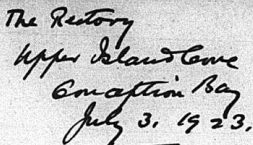 The Rectory
Upper Island Cove
Conception Bay
July 3. 1923.